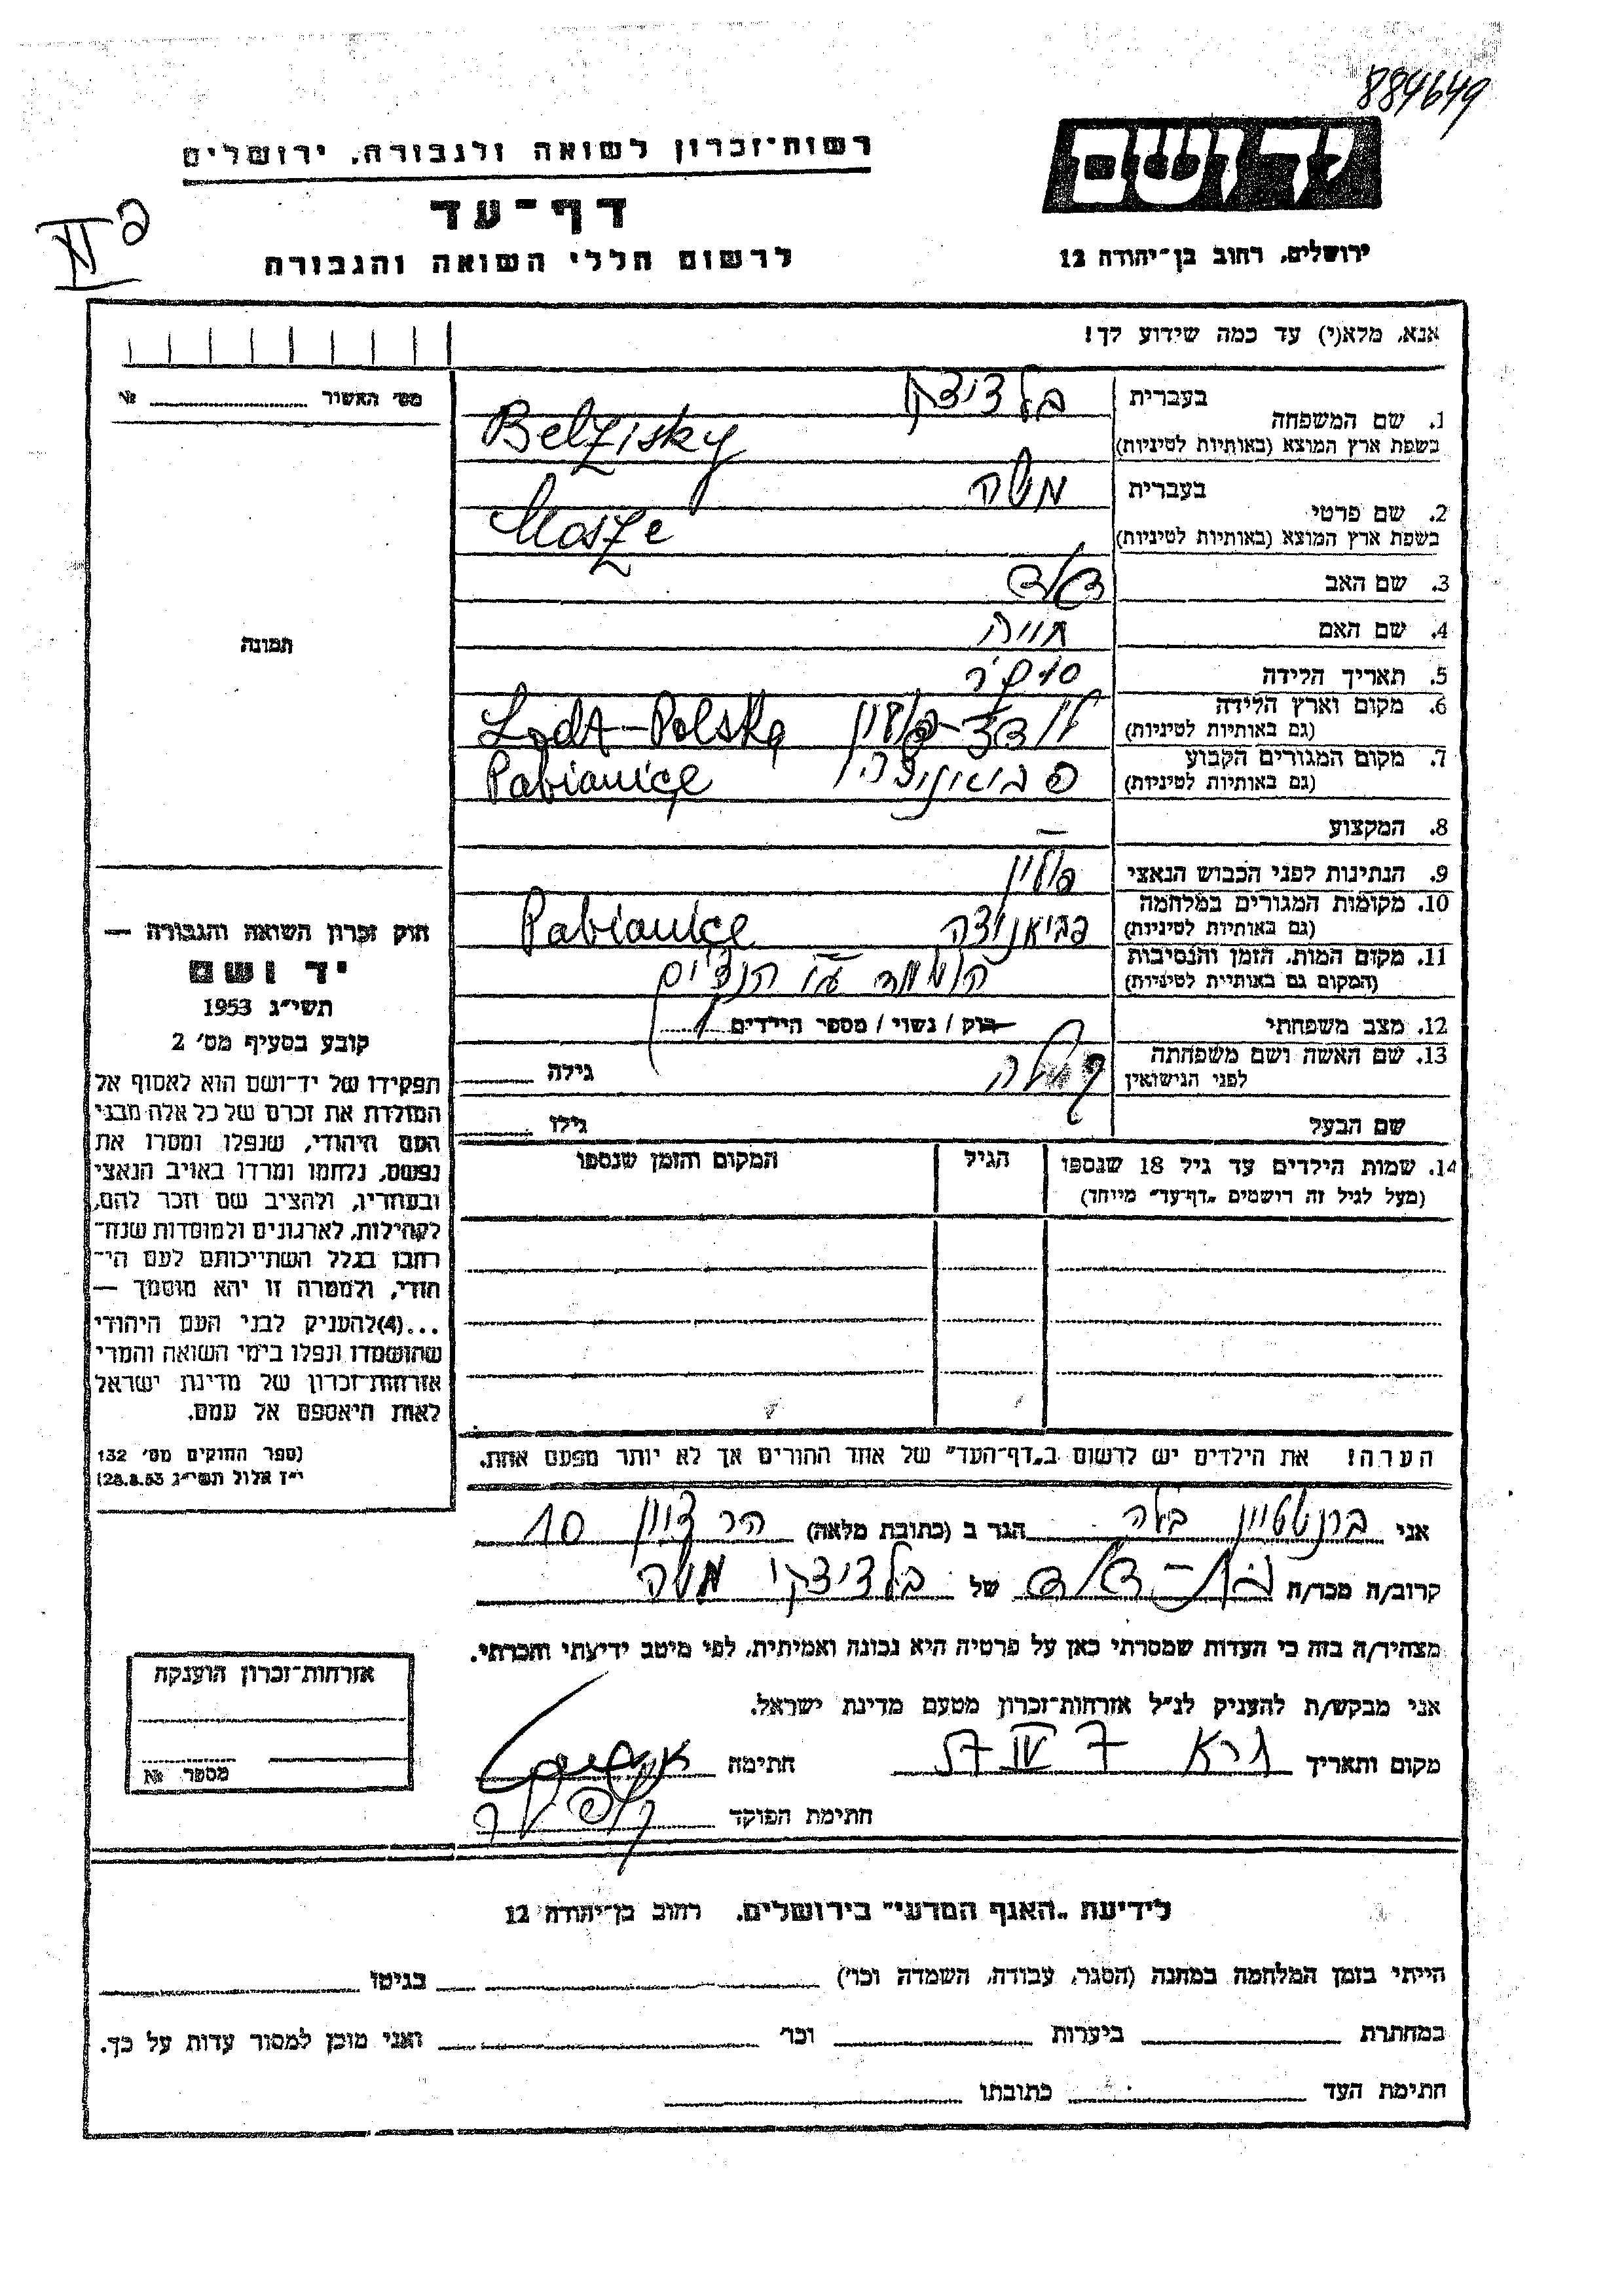 884649
יד ושם
רשות־זכרון לשואה ולגבורה, ירושלים
דף־עד
לרשום חללי השואה והגבורה
ירושלים, רחוב בן־יהודה 12
אנא, מלא(י) עד כמה שידוע לך!
מס׳ האשור № 
1. שם המשפחה
בעברית בלדיצקי
בשפת ארץ המוצא (באותיות לטיניות) Belzisky
2. שם פרטי
בעברית משה
בשפת ארץ המוצא (באותיות לטיניות) Mosze
3. שם האב דוד
4. שם האם חוה
5. תאריך הלידה
6. מקום וארץ הלידה
(גם באותיות לטיניות) לודז - פולין Lodz - Polska
7. מקום המגורים הקבוע
(גם באותיות לטיניות) Pabianice
8. המקצוע —
9. הנתינות לפני הכבוש הנאצי פולין
10. מקומות המגורים במלחמה
(גם באותיות לטיניות) פביאניצה Pabianice
11. מקום המות, הזמן והנסיבות
(המקום גם באותיית לטיניות) הושמד ע״י הנצים
12. מצב משפחתי רוק / נשוי / מספר הילדים
13. שם האשה ושם משפחתה
לפני הנישואין גילה
שם הבעל גילו
14. שמות הילדים עד גיל 18 שנספו
(מעל לגיל זה רושמים „דף־עד״ מייחד)
הגיל
המקום והזמן שנספו
הערה! את הילדים יש לרשום ב„דף־העד״ של אחד ההורים אך לא יותר מפעם אחת.
תמונה
חוק זכרון השואה והגבורה —
יד ושם
תשי״ג 1953
קובע בסעיף מס׳ 2
תפקידו של יד־ושם הוא לאסוף אל
המולדת את זכרם של כל אלה מבני
העם היהודי, שנפלו ומסרו את
נפשם, נלחמו ומרדו באויב הנאצי
ובעוזריו, ולהציב שם וזכר להם,
לקהילות, לארגונים ולמוסדות שנח־
רבו בגלל השתייכותם לעם הי־
הודי, ולמטרה זו יהא מוסמך —
...(4) להעניק לבני העם היהודי
שהושמדו ונפלו בימי השואה והמרי
אזרחות־זכרון של מדינת ישראל
לאות היאספם אל עמם.
(ספר החוקים מס׳ 132
י״ז אלול תשי״ג 28.8.53)
אני ברנשטיין בלה הגר ב (כתובת מלאה) הר ציון 10
קרוב/ה מכר/ה בת-דוד של בלדיצקי משה
מצהיר/ה בזה כי העדות שמסרתי כאן על פרטיה היא נכונה ואמיתית, לפי מיטב ידיעתי והכרתי.
אני מבקש/ת להעניק לנ״ל אזרחות־זכרון מטעם מדינת ישראל.
מקום ותאריך 7 IV 57 חתימה
חתימת הפוקד
אזרחות־זכרון הוענקה
מספר №
לידיעת „האגף המדעי״ בירושלים, רחוב בן־יהודה 12
הייתי בזמן המלחמה במחנה (הסגר, עבודה, השמדה וכו׳) בגיטו
במחתרת ביערות וכו׳ ואני מוכן למסור עדות על כך.
חתימת העד כתובתו